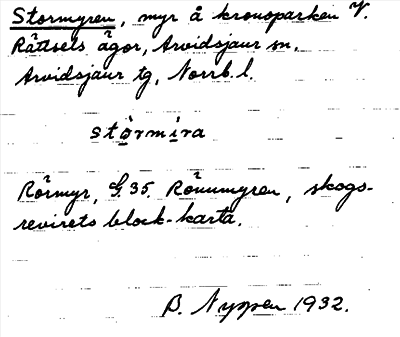 Stormyren, myr å kronsparken V.
Råttsels ägor, Arvidsjaur sn.
Arvidsjaur tg, Norrb. l.
stòrmíra
Rörmyr, G. 35. Rönnmyren, skogs-
revirets block-karta.
B. Nyppen 1932.